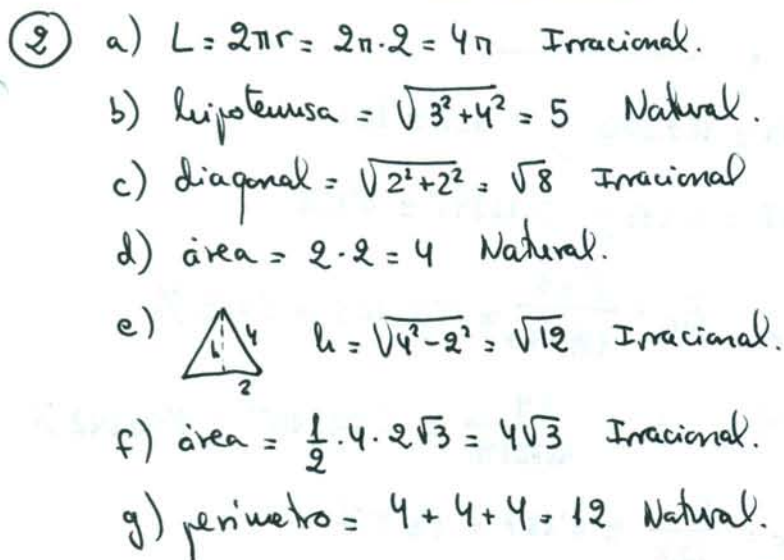 2 a) L = 2πr = 2π·2 = 4π Irracional.
b) hipotenusa = √(3² + 4²) = 5 Natural.
c) diagonal = √(2² + 2²) = √8 Irracional
d) área = 2·2 = 4 Natural.
e) h 4 2 h = √(4² - 2²) = √12 Irracional.
f) área = 1/2 · 4 · 2√3 = 4√3 Irracional.
g) perímetro = 4 + 4 + 4 = 12 Natural.